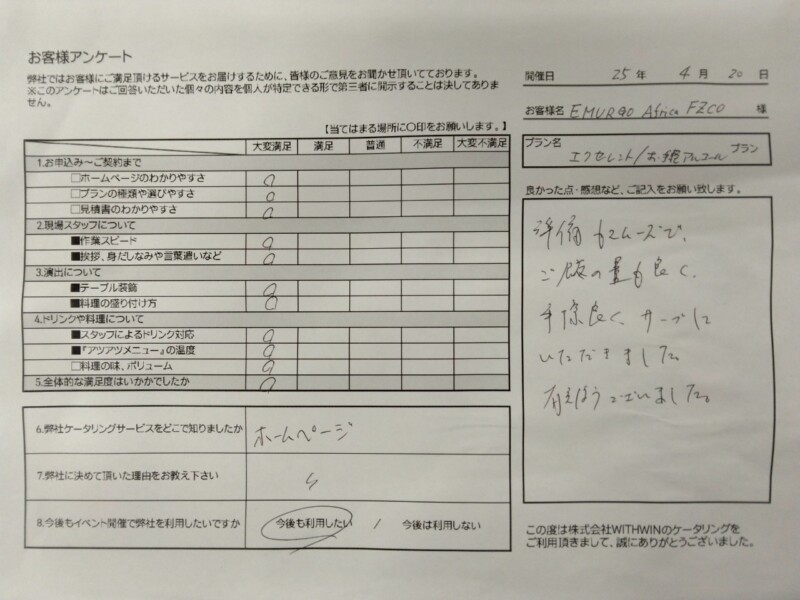 お客様アンケート
弊社ではお客様にご満足頂けるサービスをお届けするために、皆様のご意見をお聞かせ頂いております。
※このアンケートはご回答いただいた個々の内容を個人が特定できる形で第三者に開示することは決してありま
せん。
【当てはまる場所に○印をお願いします。】
大変満足 満足 普通 不満足 大変不満足
1.お申込み～ご契約まで
□ホームページのわかりやすさ ○
□プランの種類や選びやすさ ○
□見積書のわかりやすさ ○
2.現場スタッフについて
■作業スピード ○
■挨拶、身だしなみや言葉遣いなど ○
3.演出について
■テーブル装飾 ○
■料理の盛り付け方 ○
4.ドリンクや料理について
■スタッフによるドリンク対応 ○
■『アツアツメニュー』の温度 ○
□料理の味、ボリューム ○
5.全体的な満足度はいかがでしたか ○
6.弊社ケータリングサービスをどこで知りましたか ホームページ
7.弊社に決めて頂いた理由をお教え下さい 〃
8.今後もイベント開催で弊社を利用したいですか 今後も利用したい / 今後は利用しない
開催日 25 年 4 月 20 日
お客様名 EMURGO Africa FZCO 様
プラン名
エクセレント/お軽アルコール プラン
良かった点・感想など、ご記入をお願い致します。
準備もスムーズで、
ご飯の量も良く、
手際良く、サーブして
いただきました。
有難うございました。
この度は株式会社WITHWINのケータリングを
ご利用頂きまして、誠にありがとうございました。